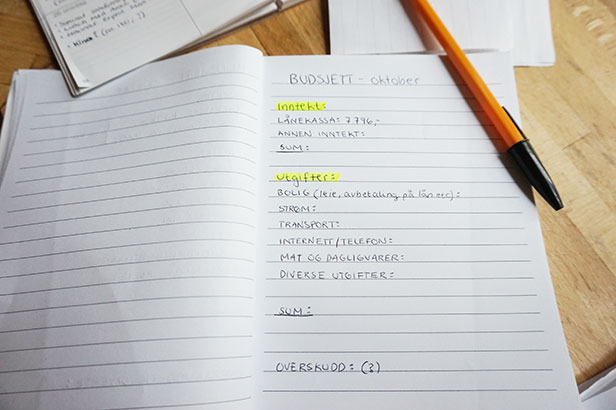 BUDSJETT - oktober
Inntekt:
LÅNEKASSA: 7.796,-
ANNEN INNTEKT:
SUM:
Utgifter:
BOLIG (leie, avbetaling på lån etc):
STRØM:
TRANSPORT:
INTERNETT/TELEFON:
MAT OG DAGLIGVARER:
DIVERSE UTGIFTER:
SUM:
OVERSKUDD: (?)